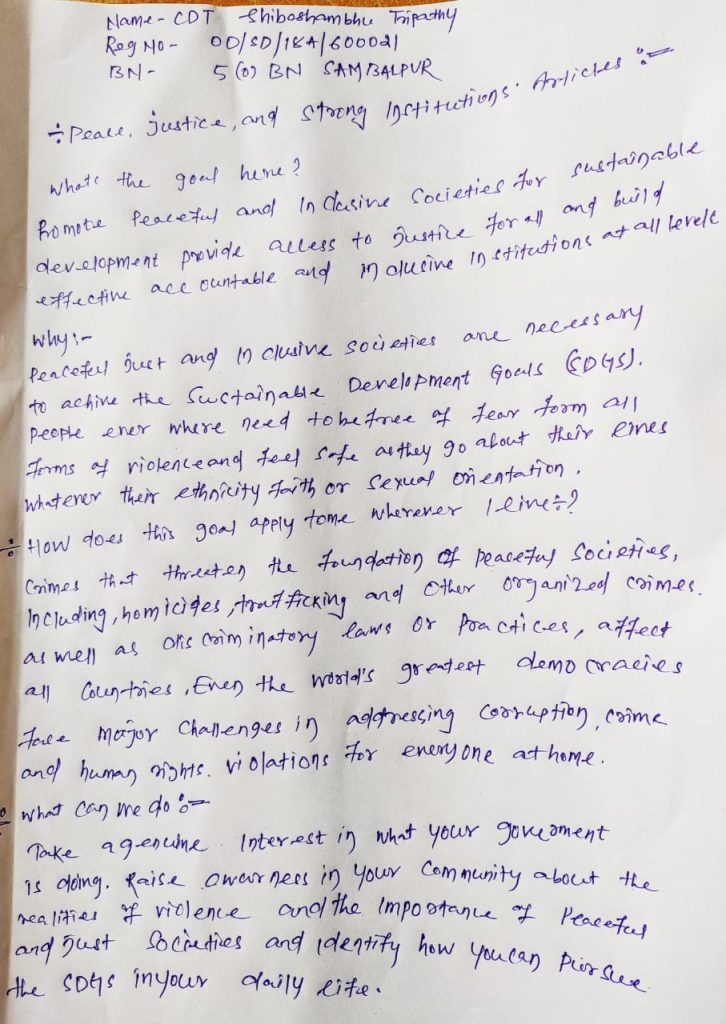 Name - CDT Shiboshambhu Tripathy
Reg No - OD/SD/18A/600021
BN - 5(O) BN SAMBALPUR
÷ Peace, justice, and strong Institutions. Articles :-
What's the goal here?
Promote Peaceful and Inclusive Societies for sustainable
development provide access to justice for all and build
effective accountable and inclusive Institutions at all levels
Why :-
Peaceful just and inclusive societies are necessary
to achive the Sustainable Development Goals (SDGS).
People ever where need to be free of fear form all
forms of violence and feel safe as they go about their lives
whatever their ethnicity faith or sexual orientation.
÷ How does this goal apply to me wherever I live ÷?
Crimes that threaten the foundation of peaceful Societies,
Including, homicides, trafficking and other organized crimes.
as well as discriminatory laws or practices, affect
all Countries, Even the world's greatest democracies
face major challenges in addressing corruption, crime
and human rights. violations for everyone at home.
÷ What can we do :-
Take a genuine Interest in what your goverment
is doing. Raise awarness in your Community about the
realities of violence and the importance of Peaceful
and just Societies and identify how you can Pursue
the SDGS in your daily life.